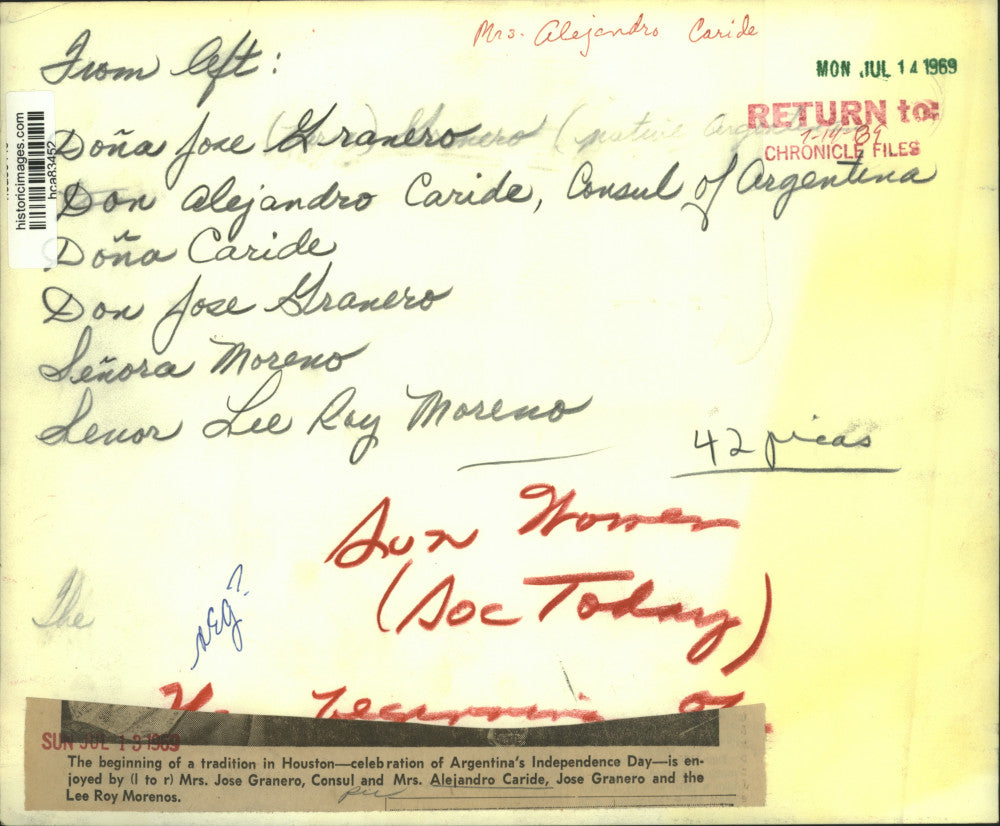 Mrs. Alejandro Caride
From left:
MON JUL 14 1969
RETURN to:
7-14-69
CHRONICLE FILES
historicimages.com
hca83452
Doña Jose Granero
(native
Don Alejandro Caride, Consul of Argentina
Doña Caride
Don Jose Granero
Señora Moreno
Senor Lee Roy Moreno
42 picas
Sun Women
(Soc Today)
The
neg?
beginning of
SUN JUL 13 1969
The beginning of a tradition in Houston—celebration of Argentina's Independence Day—is en-
joyed by (l to r) Mrs. Jose Granero, Consul and Mrs. Alejandro Caride, Jose Granero and the
Lee Roy Morenos.